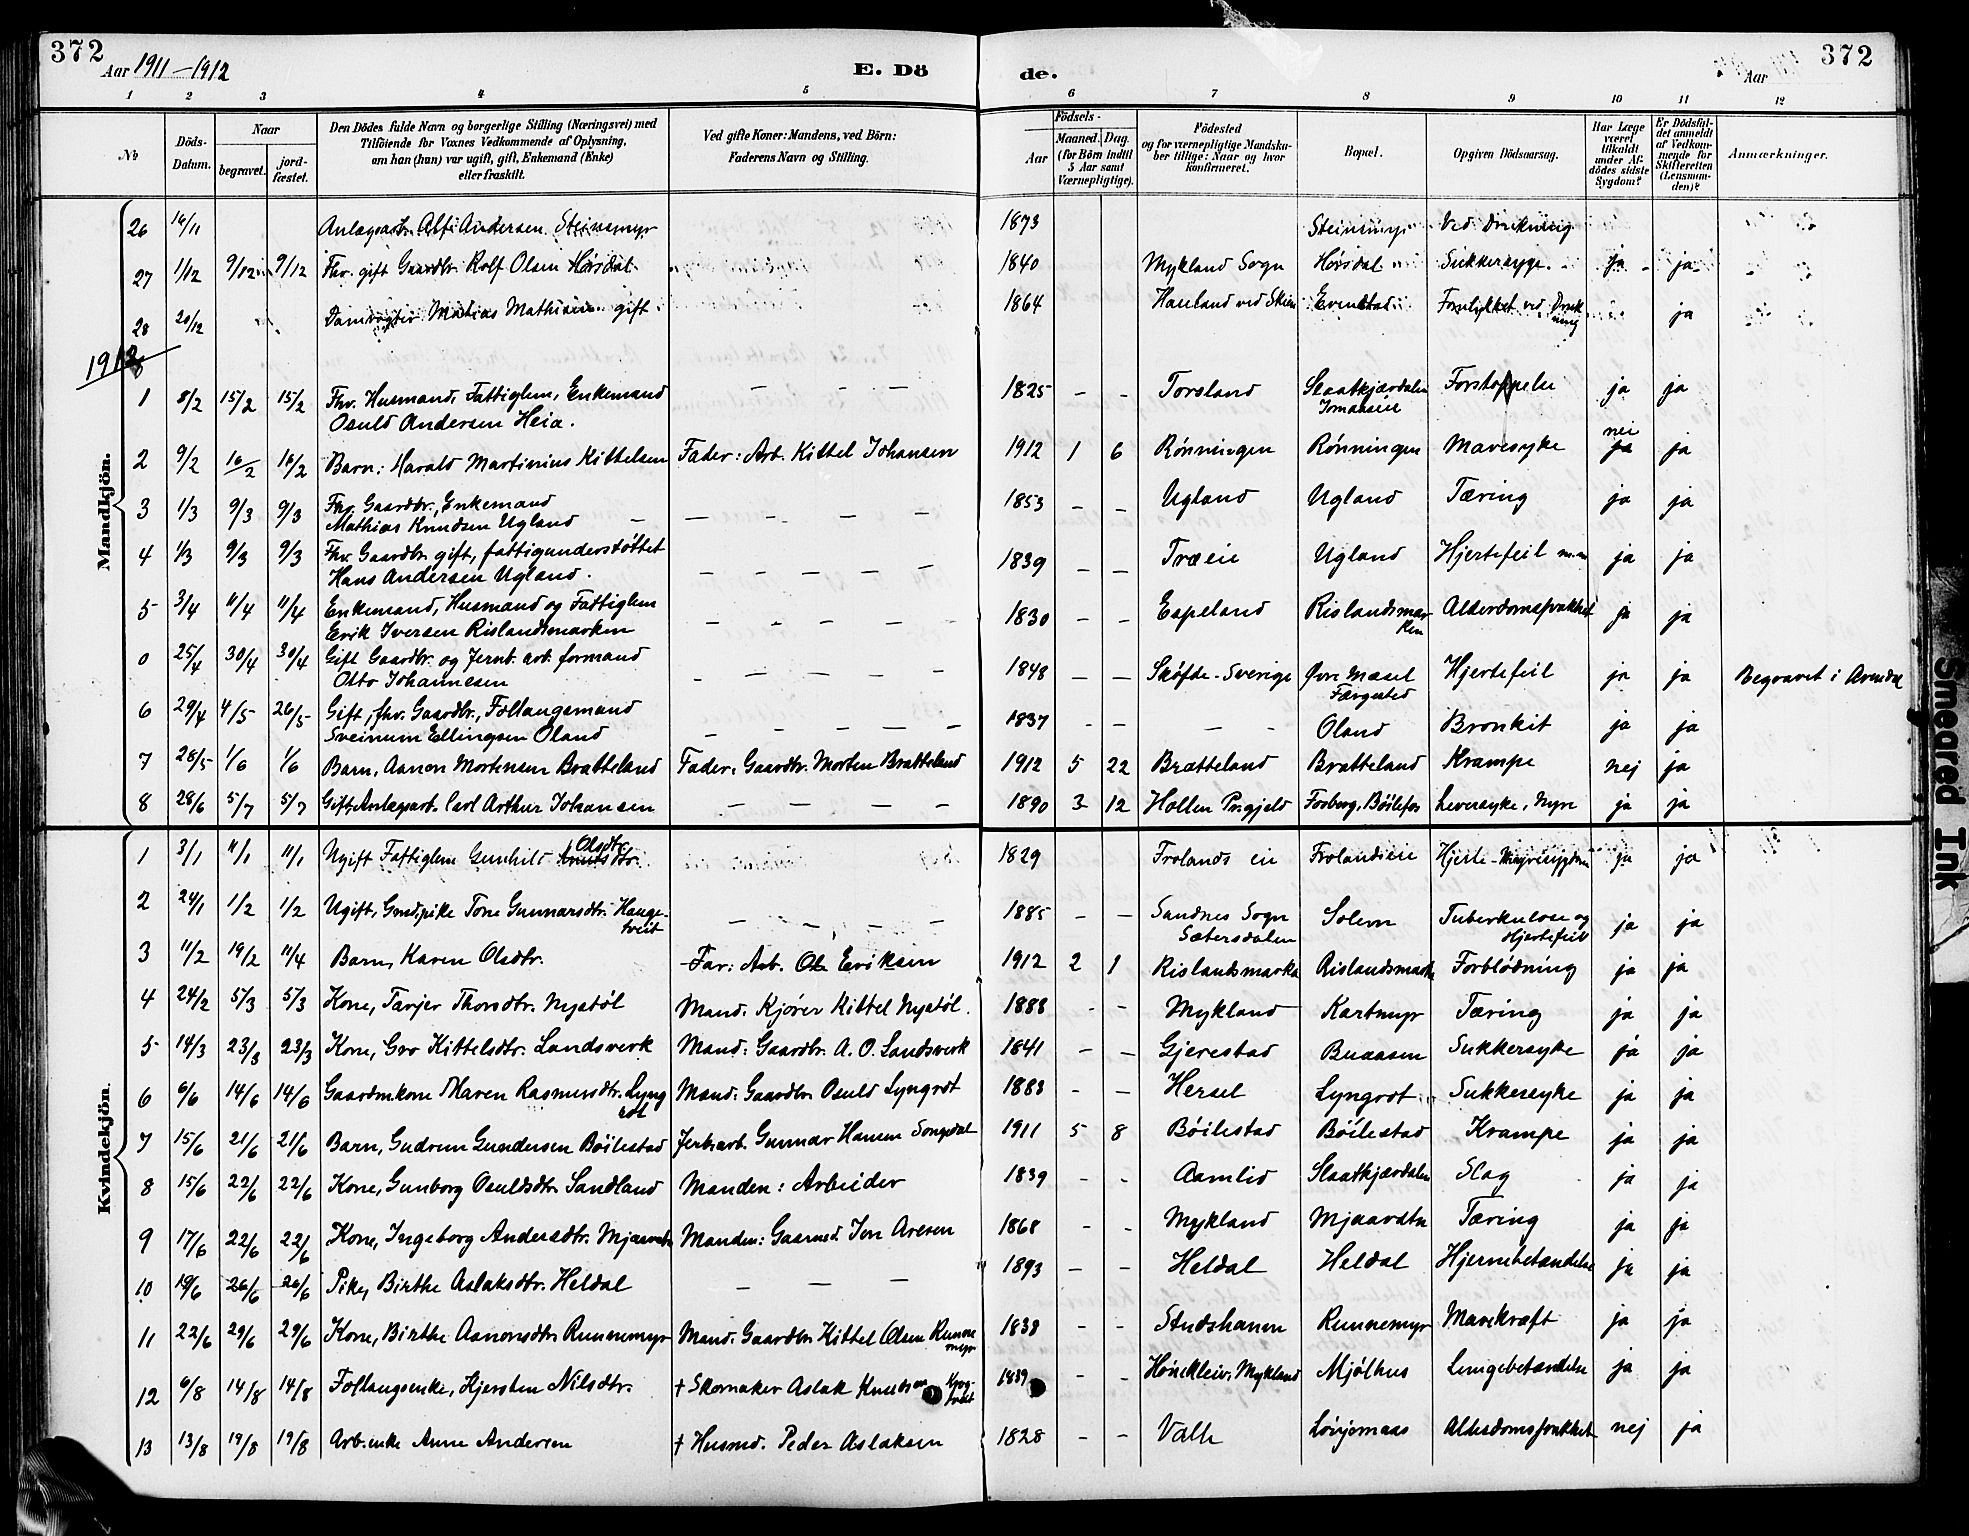 372
Aar 1911–1912
E. Dö de.
Aar
372
1 2 3 4 5 6 7 8 9 10 11 12
No
Döds-Datum.
Naar
begravet.
jordfæstet.
Den Dödes fulde Navn og borgerlige Stilling (Næringsvei) med
Tilföiende for Voxnes Vedkommende af Oplysning,
om han (hun) var ugift, gift, Enkemand (Enke)
eller fraskilt.
Ved gifte Koner: Mandens, ved Börn:
Faderens Navn og Stilling.
Födsels-
Aar
Maaned. Dag.
(for Börn indtil
5 Aar samt
Værnepligtige).
Födested
og for værnepligtige Mandska-
ber tillige: Naar og hvor
konfirmeret.
Bopæl.
Opgiven Dödsaarsag.
Har Læge
været
tilkaldt
under Af-
dödes sidste
Sygdom?
Er Dödsfal-
det anmeldt
af Vedkom-
mende for
Skifteretten
(Lensman-
den)?
Anmærkninger.
Mandkjön.
26 16/11 Anlægsarb. Alfr Andersen Steinsmyr 1873 Steinsmyr Ved Drukning
27 1/12 9/12 9/12 Fhv. gift Gaardbr. Rolf Olsen Hørsdal 1840 Mykland Sogn Hørsdal Sukkersyge ja ja
28 20/12 Damvogter Mathias Mathisen gift 1864 ved Skien Evenstad Forulykket ved Drukning ja
1912
1 8/2 15/2 15/2 Fhv. Husmand, Fattiglem, Enkemand — — — 1825 – – Torsland Slaatkjærdalen ja ja
Osuld Andersen Heia.
2 9/2 16/2 16/2 Barn: Harald Martinius Kittelsen Fader: Arb. Kittel Johansen 1912 1 6 Rønningen Rønningen Mavesyke nei ja ja
3 1/3 9/3 9/3 Fhv. Gaardbr., Enkemand 1853 – – Ugland Ugland Tæring ja ja
Mathias Knudsen Ugland – — — — —
4 1/3 9/3 9/3 Fhv. Gaardbr. gift, fattigunderstøttet 1839 – – Træeie Ugland Hjertefeil m.m ja ja
Hans Andersen Ugland. — — — — —
5 3/4 11/4 11/4 Enkemand, Husmand og Fattiglem 1830 – – Espeland Rislandsmarken Alderdomssvakhet ja ja
Erik Iversen Rislandsmarken – – – – –
0 25/4 30/4 30/4 Gift Gaardbr. og Jernb. arb. formand 1848 – – Skøfde - Sverige Øvre Mæsel Hjertefeil ja ja Begravet i Arendal
Otto Johannesen – — — — — Færgested
6 29/4 4/5 26/5 Gift, fhv. Gaardbr., Føllaugsmand 1837 – – – – Oland Bronkit ja ja
Sveinum Ellingsen Oland – — — — —
7 28/5 1/6 1/6 Barn, Aanon Mortensen Bratteland Fader, Gaardbr. Morten Bratteland 1912 5 22 Bratteland Bratteland Krampe nej ja
8 28/6 5/7 5/7 Gift, Anlægsarb. Carl Arthur Johansen — — — — 1890 3 12 Hollen Prgjeld Forberg, Bøilefos Leversyke, Nyre ja ja
Kvindekjön.
1 3/1 11/1 11/1 Ugift Fattiglem Gunhild Olsdtr. 1829 Frolands eie Frolandseie Hjerte-Nyresygdom ja ja
2 24/1 1/2 1/2 Ugift, Grndpike Tone Gunnarsdtr. Haugetveit — — — — 1885 – – Sandnes Sogn Solem Tuberkulose og ja ja
Sætersdalen Hjertefeil
3 11/2 19/2 11/4 Barn, Karen Olsdtr. Far: Arb. Ole Eriksen 1912 2 1 Rislandsmarka Rislandsmarka Forblødning ja ja
4 24/2 5/3 5/3 Kone, Tarjer Thorsdtr. Nystøl Mand. Kjører Kittel Nystøl. 1888 – – Mykland Kartmyr Tæring ja ja
5 14/3 23/3 23/3 Kone, Gro Kittelsdtr. Landsverk Mand: Gaardbr. A. O. Landsverk 1841 – – Gjerestad Buaasen Sukkersyke ja ja
6 6/6 14/6 14/6 Gaardm.kone Maren Rasmusdtr. Lyngrot Mand. Gaardbr. Osuld Lyngrot 1883 – – Hersel Lyngrot Sukkersyke ja ja
7 15/6 21/6 21/6 Barn, Gudrun Gundersen Bøilestad Jerb.arb. Gunnar Hansen Songedal 1911 5 8 Bøilestad Bøilestad Krampe ja ja
8 15/6 22/6 22/6 Kone, Gunborg Osuldsdtr Sandland Manden: Arbeider 1839 – – Aamlid Slaatkjærdalen Slag ja ja
9 17/6 22/6 22/6 Kone, Ingeborg Andersdtr. Mjaavatn Manden: Gaarmd. Jon Aresen 1868 – – Mykland Mjaavatn Tæring ja ja
10 19/6 26/6 26/6 Pike, Birthe Aslaksdtr. Heldal — — — 1893 – – Heldal Heldal Hjernebetændelse ja ja
11 22/6 29/6 29/6 Kone, Birthe Aanonsdtr Runnemyr Mand. Gaardbr Kittel Olsen Runnemyr 1838 – – Runnemyr Mavekræft ja ja
12 6/8 14/8 14/8 Føllaugsenke, Kjersten Nilsdtr. † Skomaker Aslak Knudsen 1839 – – Mykland Mjølhus Lungebetændelse ja ja
13 13/8 19/8 19/8 Arb.enke Anne Andersen † Husmd. Peder Aslaksen 1828 – – Valle Alderdomssvakhet nej ja
Smeared Ink